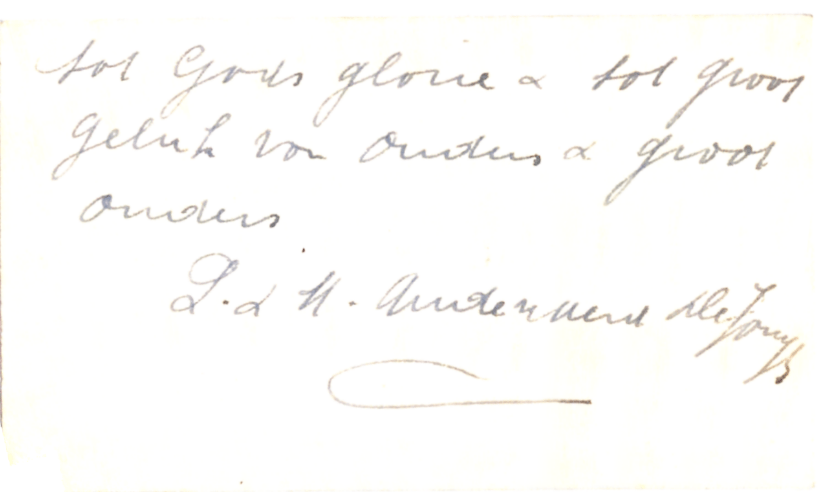 tot Gods glorie & tot groot
geluk van Ouders & groot
ouders
L. & H.